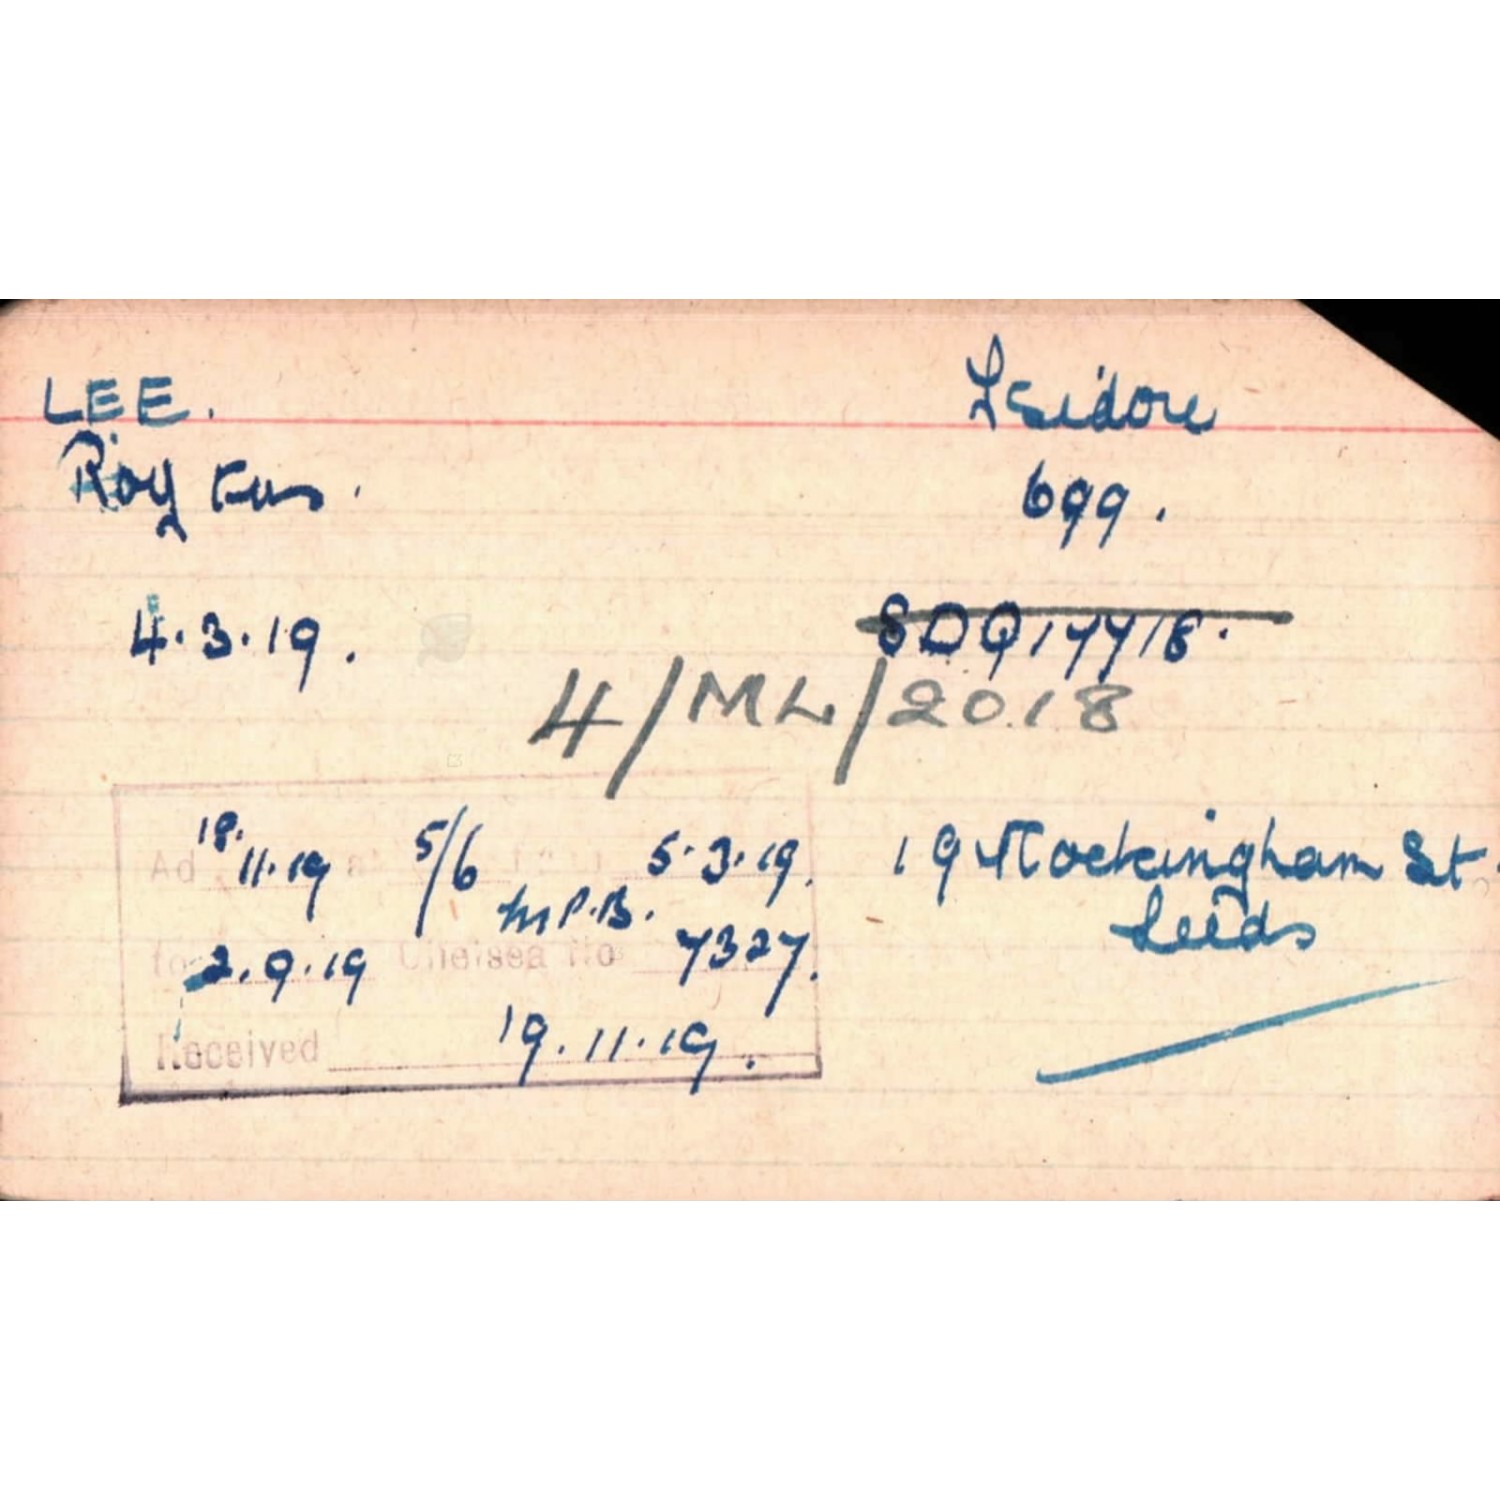 LEE. Isidore
Roy Fus. 699.
4.3.19. SDQ17718.
4/ML/2018
18.11.19 5/6 5.3.19.
M.P.B.
2.9.19 Chelsea No 7327.
Received 19.11.19.
19 Rockingham St.
Leeds